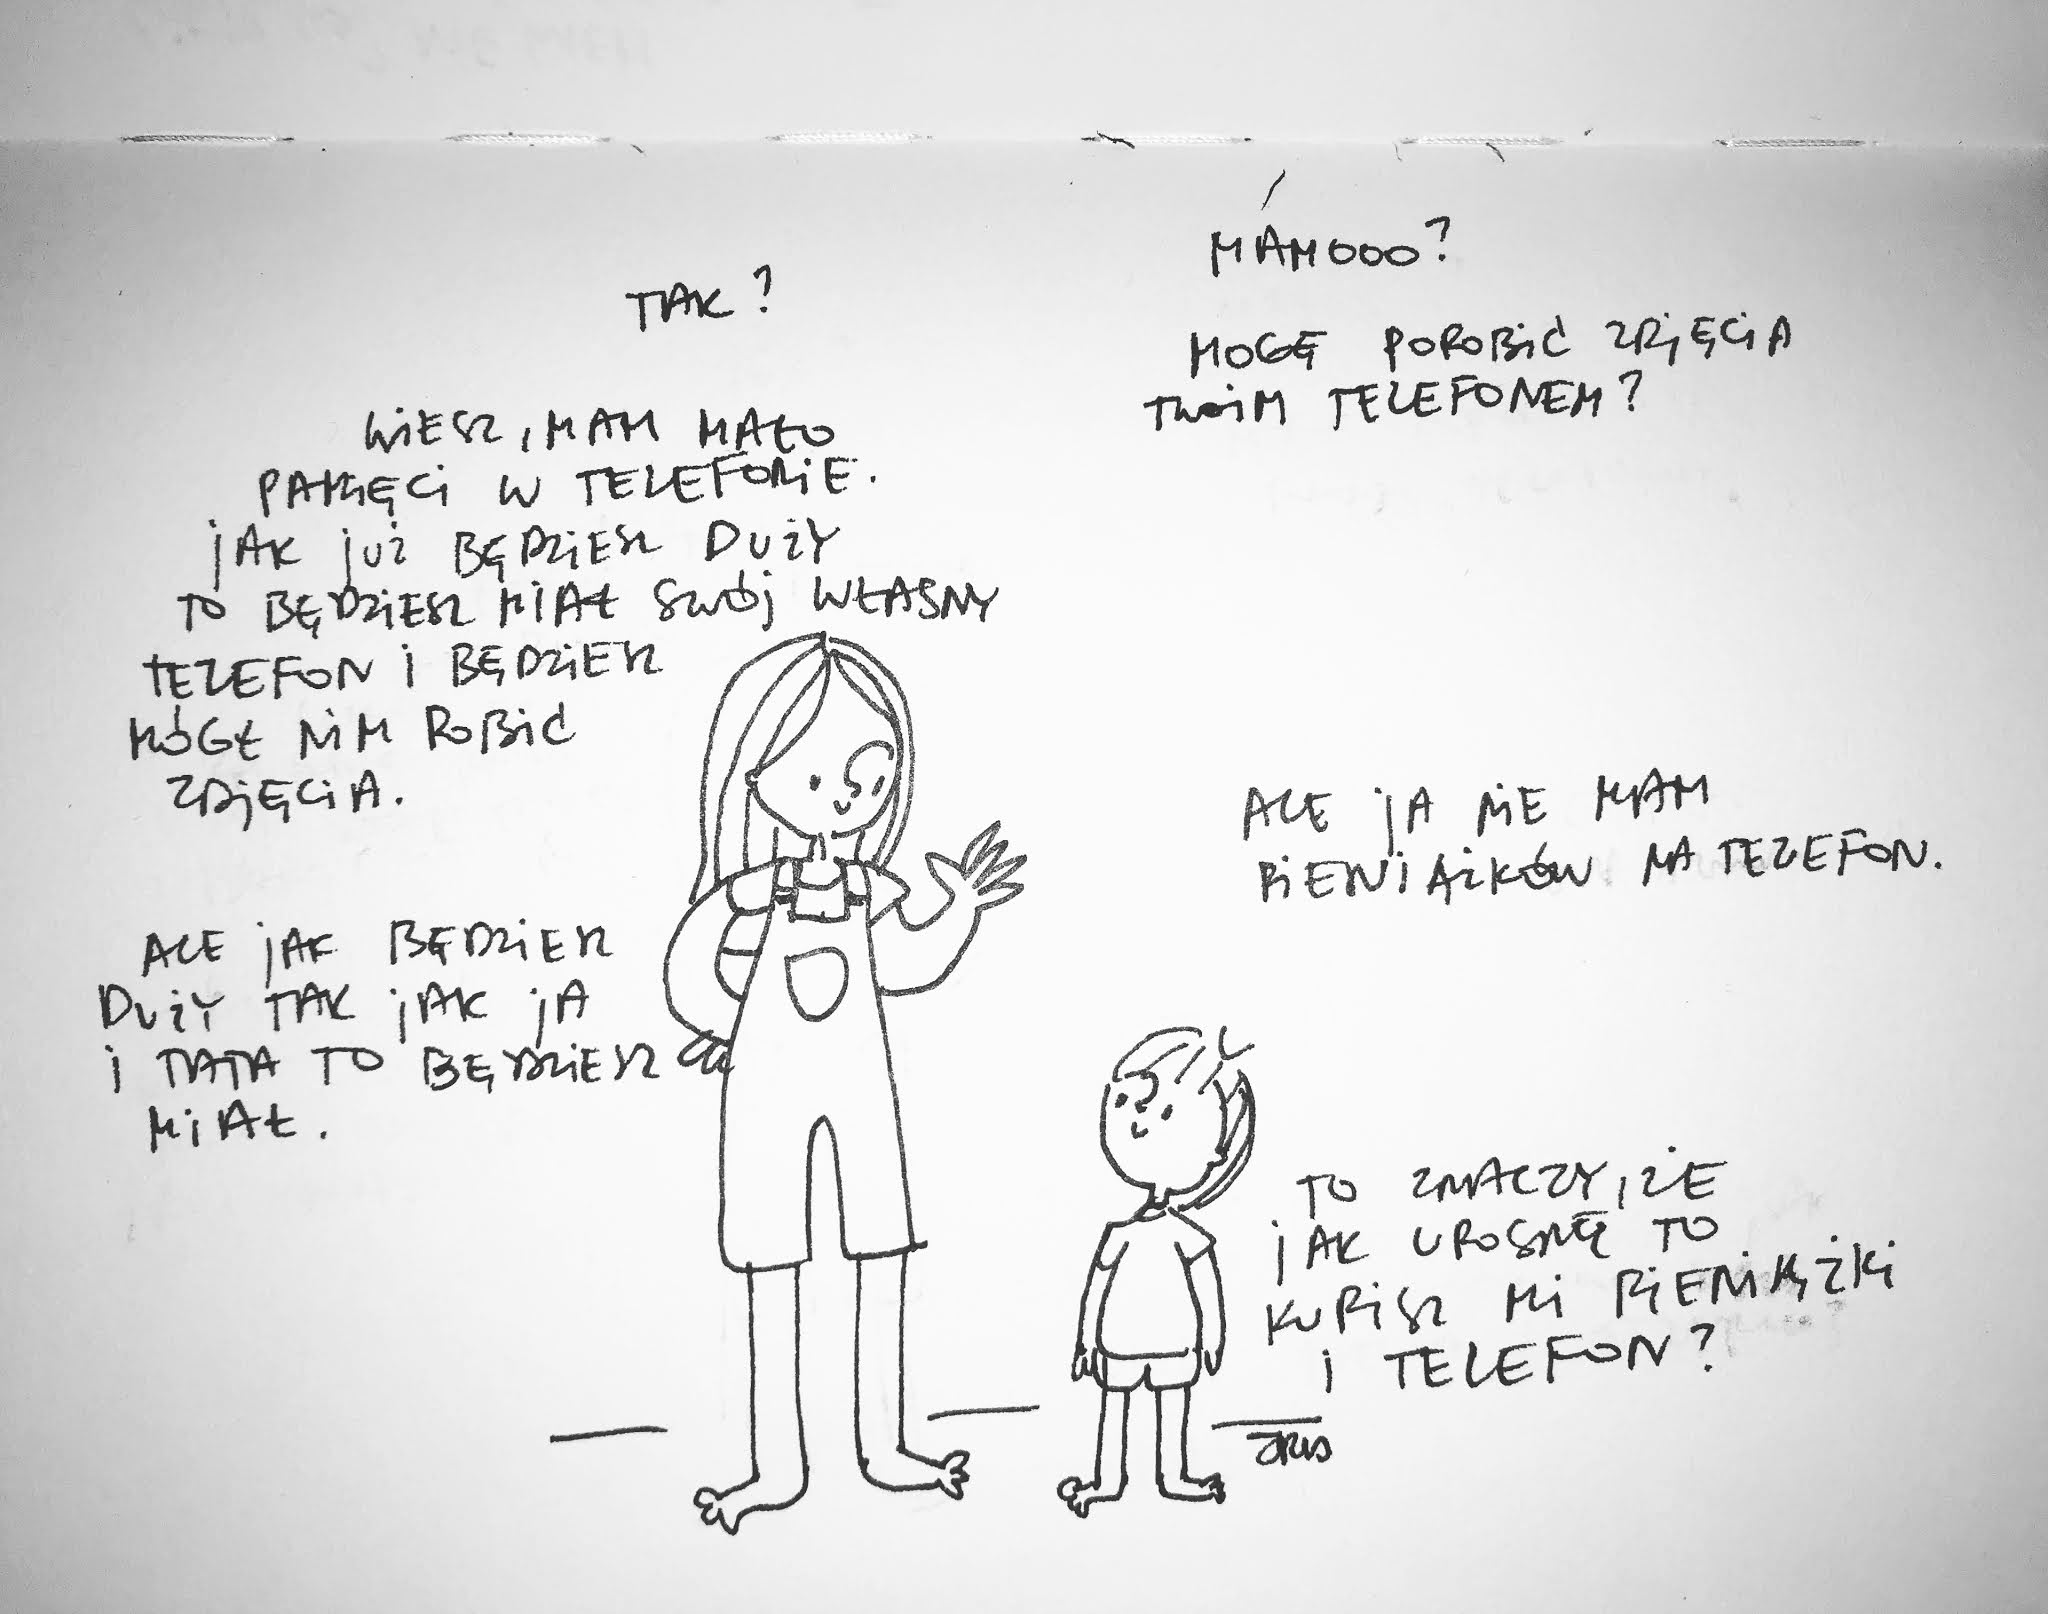 MAMOOO?
TAK?
MOGĘ POROBIĆ ZDJĘCIA
TWOIM TELEFONEM?
WIESZ, MAM MAŁO
PAMIĘCI W TELEFONIE.
JAK JUŻ BĘDZIESZ DUŻY
TO BĘDZIESZ MIAŁ SWÓJ WŁASNY
TELEFON I BĘDZIESZ
MÓGŁ NIM ROBIĆ
ZDJĘCIA.
ALE JA NIE MAM
PIENIĄŻKÓW NA TELEFON.
ALE JAK BĘDZIESZ
DUŻY TAK JAK JA
I TATA TO BĘDZIESZ
MIAŁ.
TO ZNACZY, ŻE
JAK UROSNĘ TO
KUPISZ MI PIENIĄŻKI
I TELEFON?